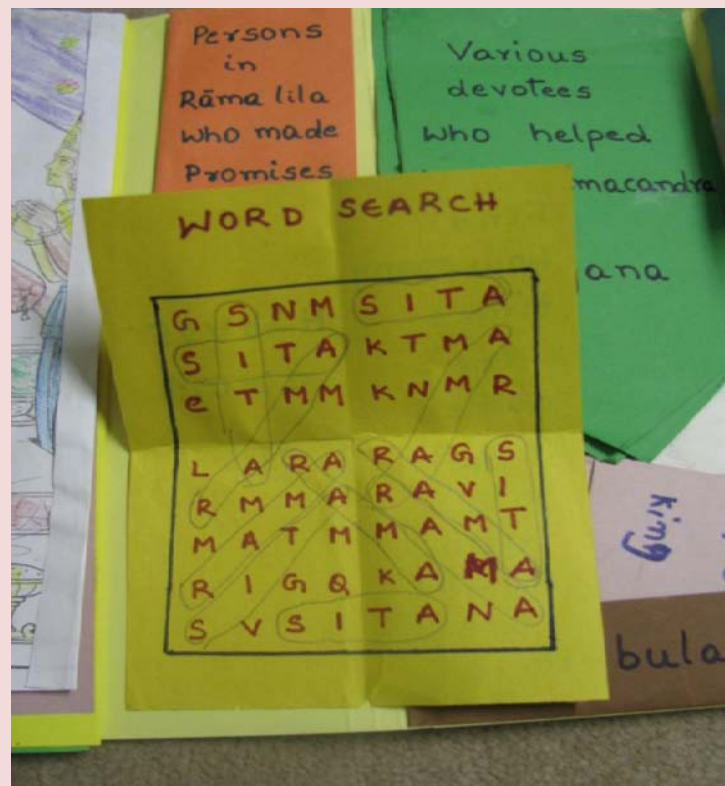 Persons
in
Rāma lila
who made
Promises
Various
devotees
who helped
macandra
ana
WORD SEARCH
G S N M S I T A
S I T A K T M A
e T M M K N M R
L A R A R A G S
R M M A R A V I
M A T M M A M T
R I G Q K A M A
S V S I T A N A
king
bula